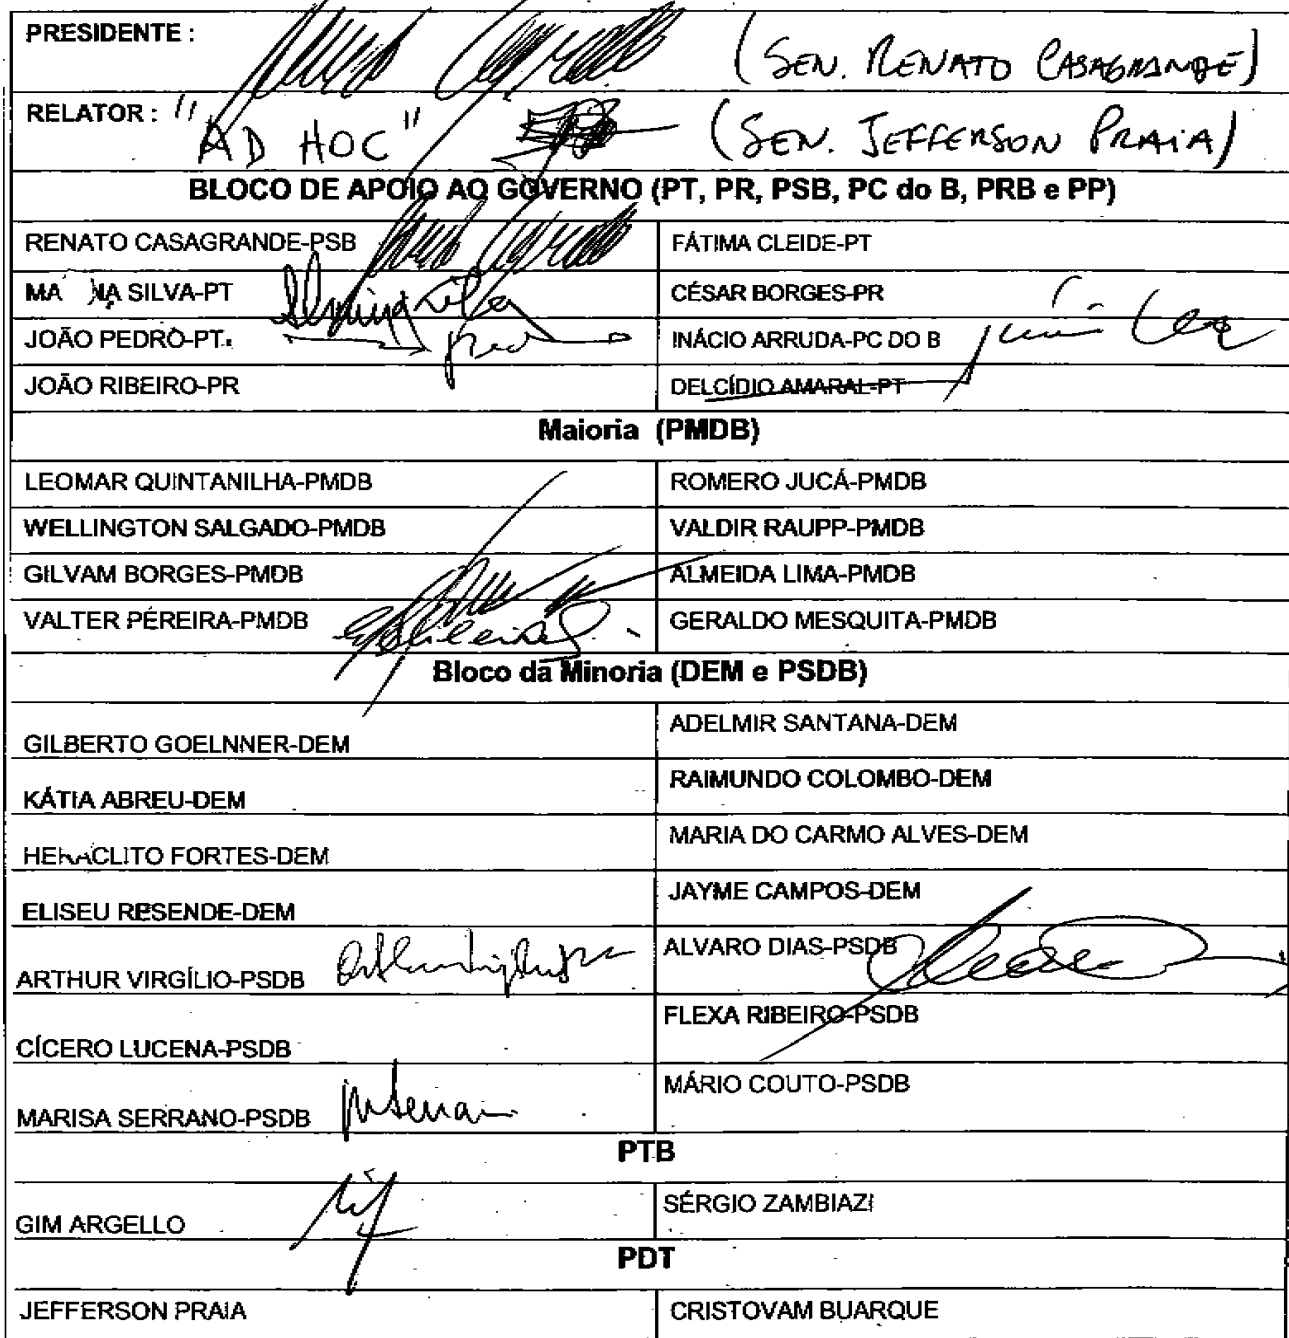 PRESIDENTE : (SEN. RENATO CASAGRANDE)
RELATOR : "AD HOC" (SEN. JEFFERSON PRAIA)
BLOCO DE APOIO AO GOVERNO (PT, PR, PSB, PC do B, PRB e PP)
RENATO CASAGRANDE-PSB FÁTIMA CLEIDE-PT
MA NA SILVA-PT CÉSAR BORGES-PR
JOÃO PEDRO-PT. INÁCIO ARRUDA-PC DO B
JOÃO RIBEIRO-PR DELCÍDIO AMARAL-PT
Maioria (PMDB)
LEOMAR QUINTANILHA-PMDB ROMERO JUCÁ-PMDB
WELLINGTON SALGADO-PMDB VALDIR RAUPP-PMDB
GILVAM BORGES-PMDB ALMEIDA LIMA-PMDB
VALTER PEREIRA-PMDB GERALDO MESQUITA-PMDB
Bloco da Minoria (DEM e PSDB)
GILBERTO GOELNNER-DEM ADELMIR SANTANA-DEM
KÁTIA ABREU-DEM RAIMUNDO COLOMBO-DEM
HERACLITO FORTES-DEM MARIA DO CARMO ALVES-DEM
ELISEU RESENDE-DEM JAYME CAMPOS-DEM
ARTHUR VIRGÍLIO-PSDB ALVARO DIAS-PSDB
CÍCERO LUCENA-PSDB FLEXA RIBEIRO-PSDB
MARISA SERRANO-PSDB MÁRIO COUTO-PSDB
PTB
GIM ARGELLO SÉRGIO ZAMBIAZI
PDT
JEFFERSON PRAIA CRISTOVAM BUARQUE